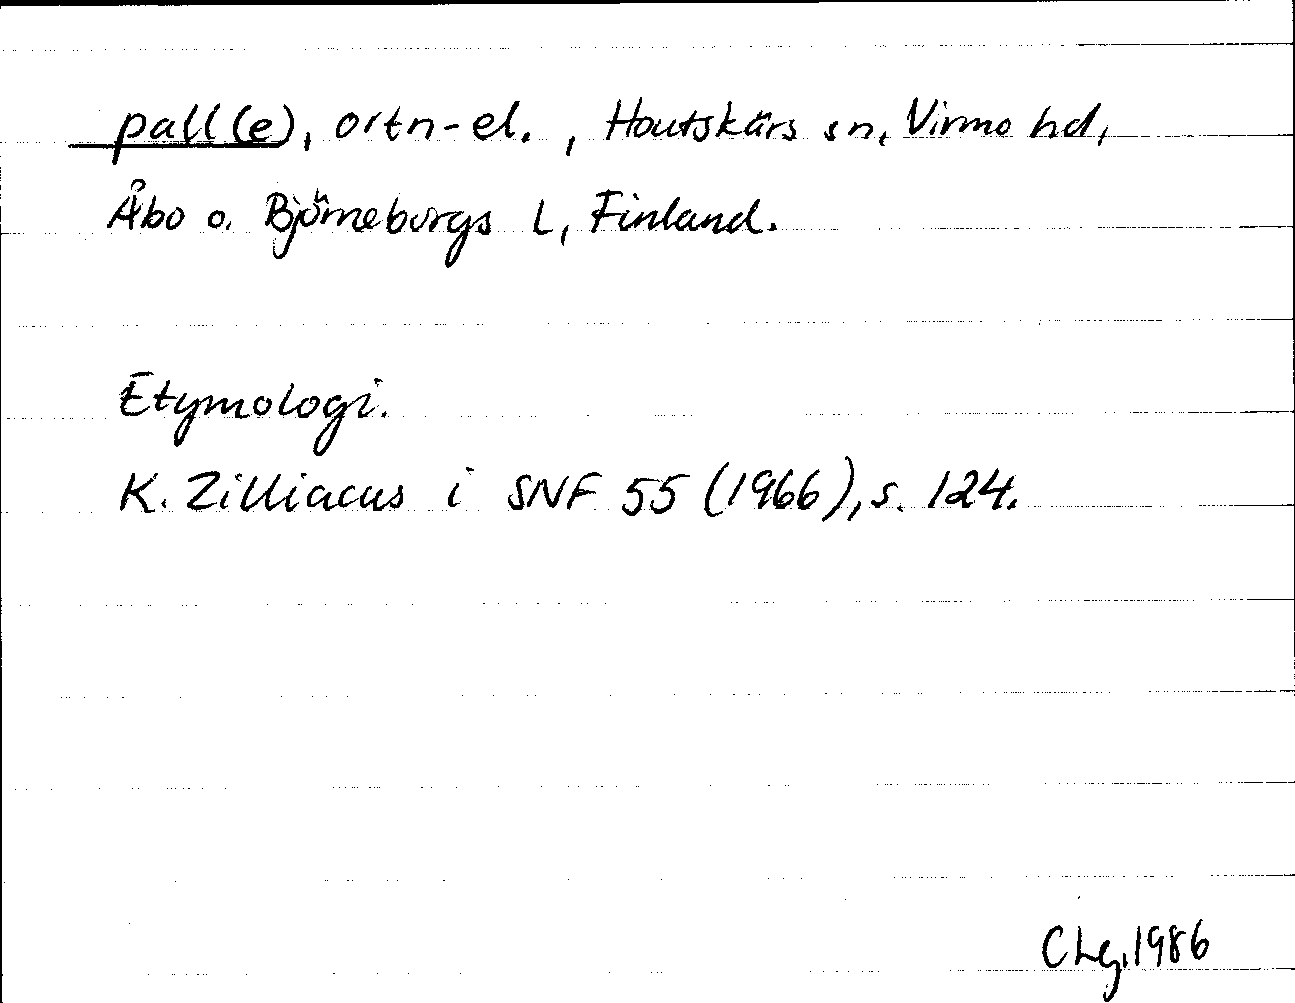 pall(e), ortn-el., Houtskärs sn, Virmo hd,
Åbo o. Björneborgs L, Finland.
Etymologi.
K. Zilliacus i SNF 55 (1966), s. 124.
CLg. 1986